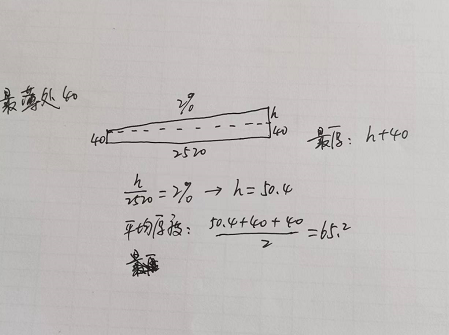 最薄处 40
2%
h
40
40
2520
最厚: h+40
h/2520 = 2% → h = 50.4
平均厚度: (50.4+40+40)/2 = 65.2